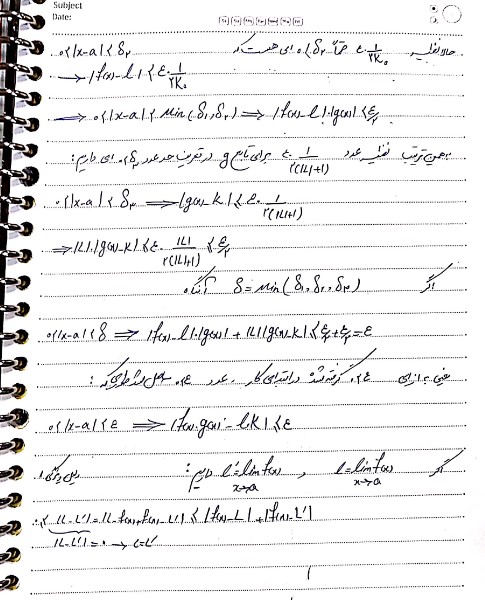 Subject
Date:
حالا نقطه ε·1/2K₀ حتماً δ₂>0 ای هست که 0<|x-a|<δ₂
→ |f(x)-L|<ε·1/2K₀
→ 0<|x-a|<Min(δ₁,δ₂) ⇒ |f(x)-L|·|g(x)|<ε/2
بهمین ترتیب عدد ε·1/2(|L|+1) برای تابع g در تعریف حد عدد δ₃>0 ای داریم:
0<|x-a|<δ₃ ⇒ |g(x)-K|<ε·1/2(|L|+1)
⇒ |L|·|g(x)-K|<ε·|L|/2(|L|+1)<ε/2
اگر δ=Min(δ₁,δ₂,δ₃) آنگاه
0<|x-a|<δ ⇒ |f(x)-L|·|g(x)|+|L||g(x)-K|<ε/2+ε/2=ε
یعنی به ازای ε>0 گرفته شده در ابتدای کار، عدد ε>0
0<|x-a|<ε ⇒ |f(x)·g(x)-L·K|<ε
اگر L=lim f(x) x→a , L'=lim f(x) x→a داریم:
0≤|L-L'|=|L-f(x)+f(x)-L'|≤|f(x)-L|+|f(x)-L'|
|L-L'|=0 → L=L'